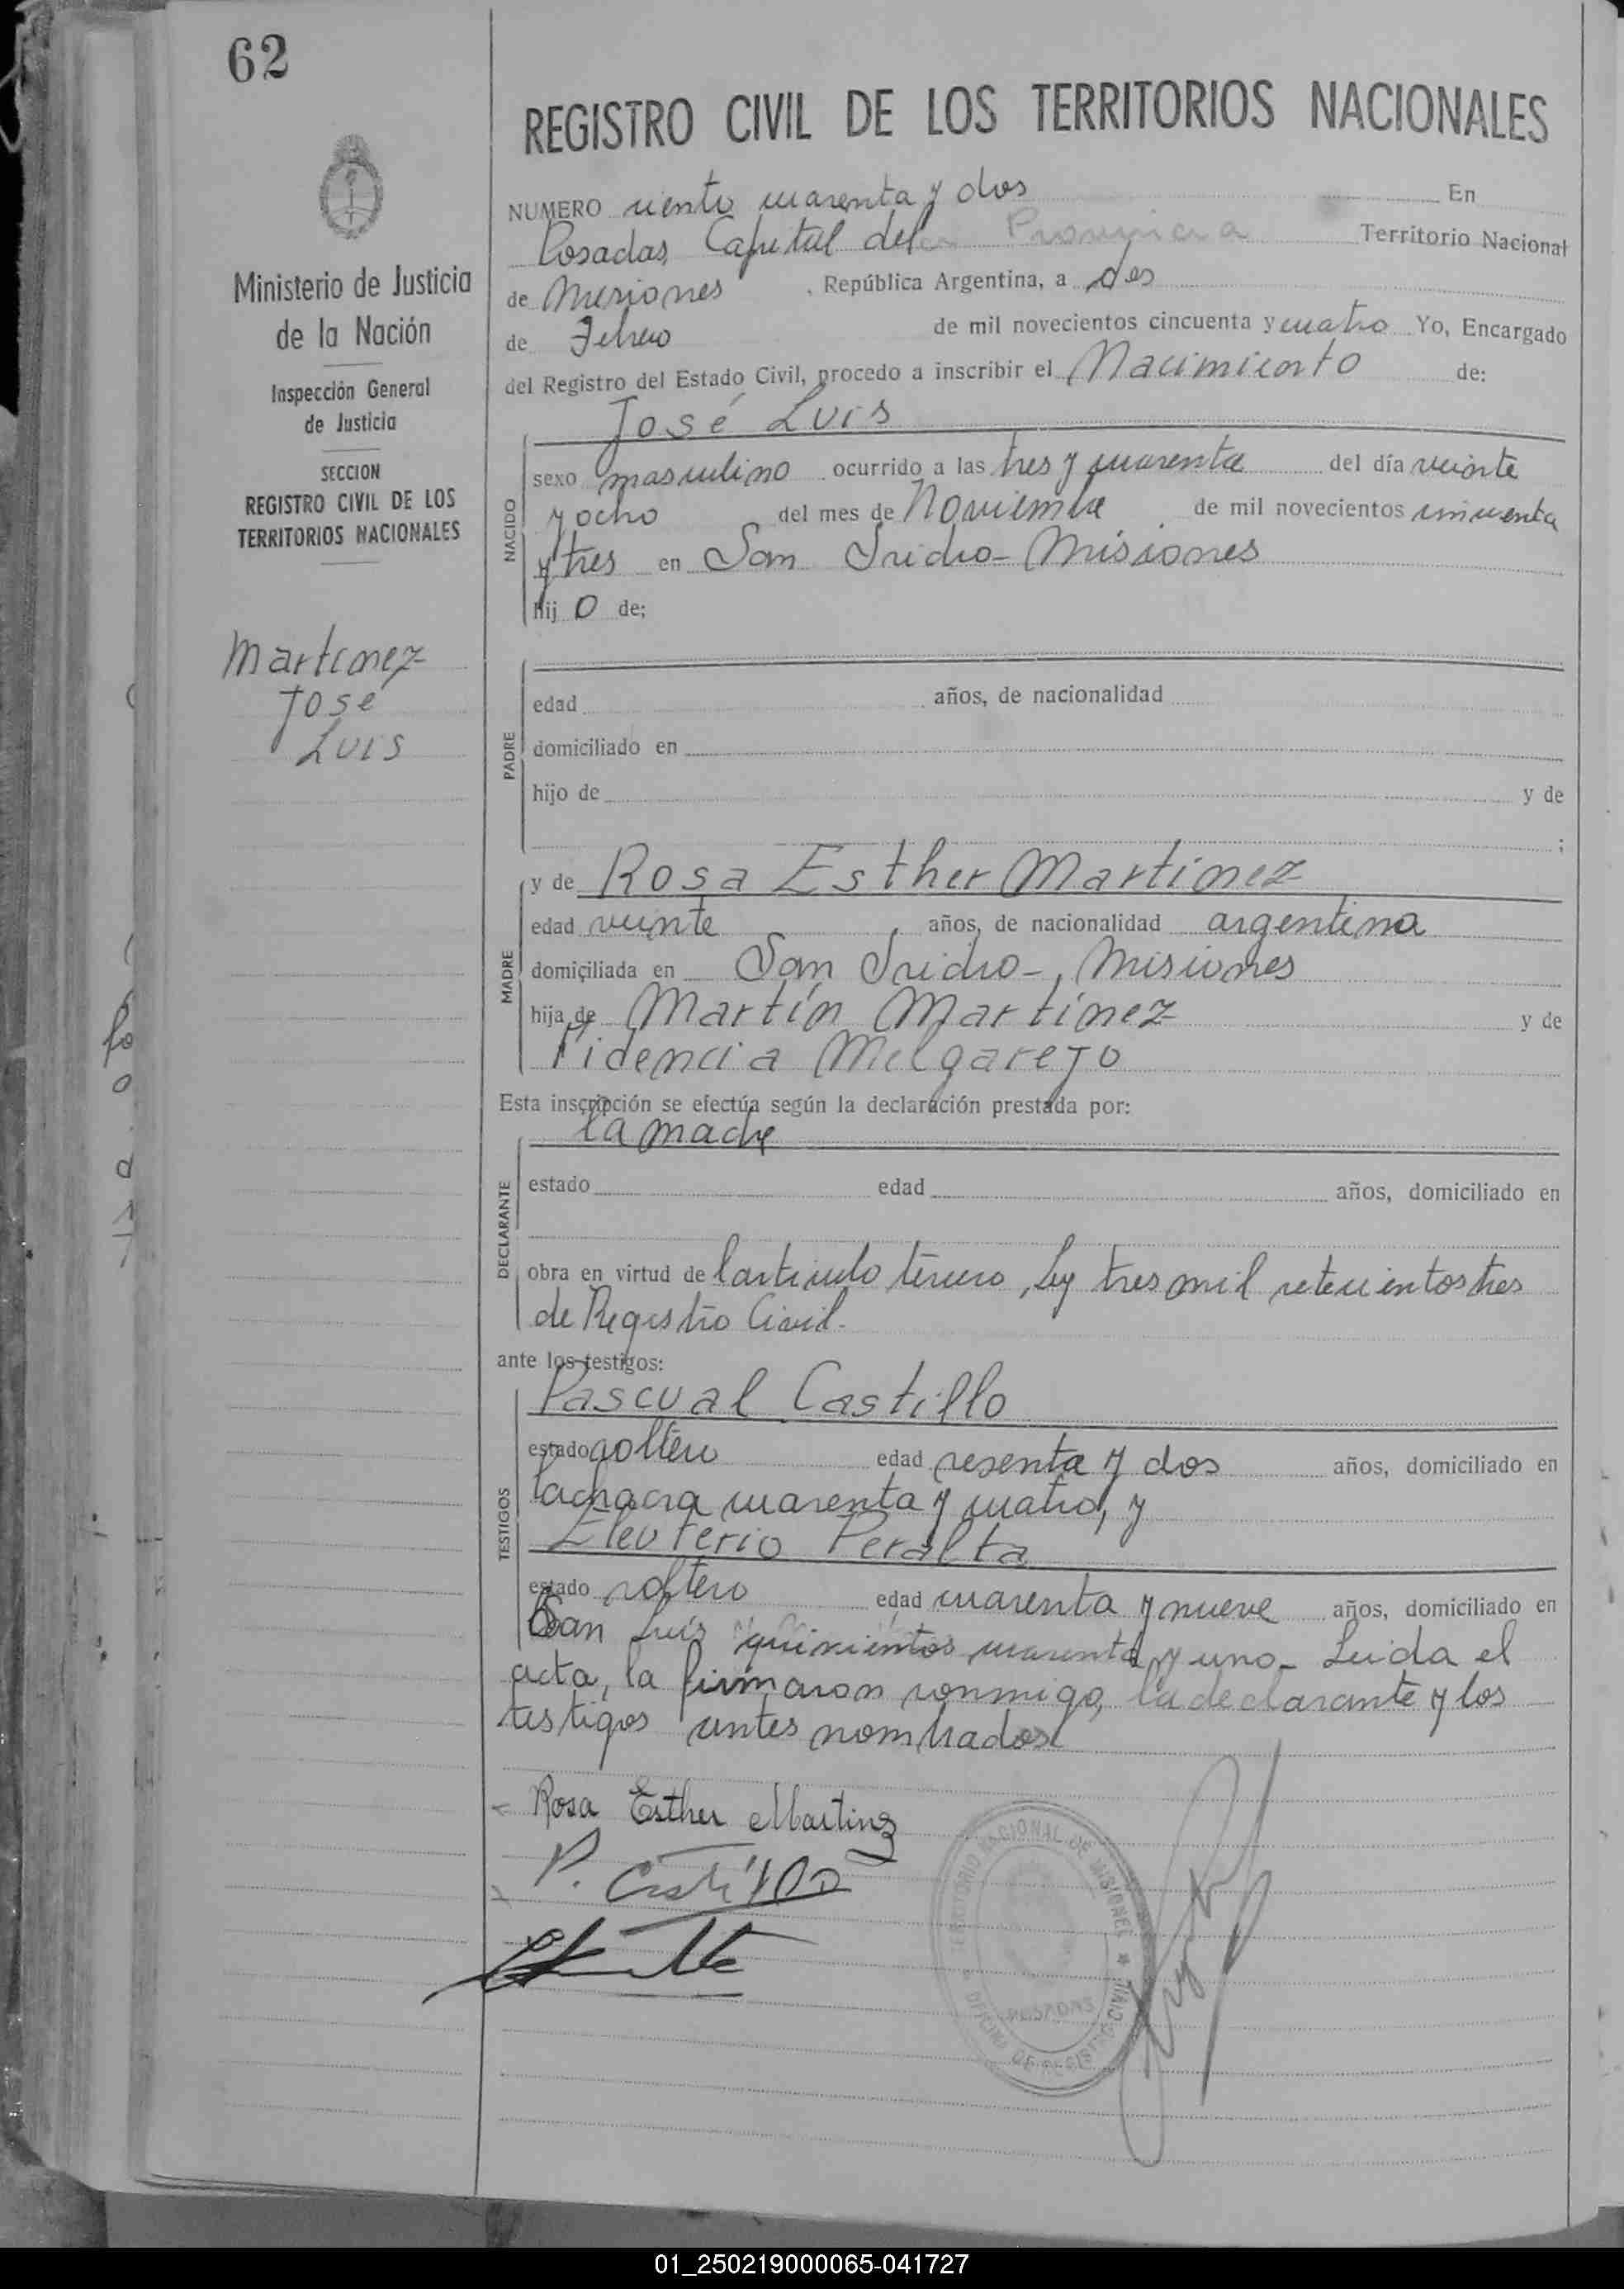 62
REGISTRO CIVIL DE LOS TERRITORIOS NACIONALES
Ministerio de Justicia
de la Nación
Inspección General
de Justicia
SECCION
REGISTRO CIVIL DE LOS
TERRITORIOS NACIONALES
Martinez
José
Luis
NUMERO ciento cuarenta y dos En
Posadas, Capital del Provincia Territorio Nacional
de Misiones , República Argentina, a dos
de Febrero de mil novecientos cincuenta y cuatro Yo, Encargado
del Registro del Estado Civil, procedo a inscribir el Nacimiento de:
José Luis
NACIDO
sexo masculino ocurrido a las tres y cuarenta del día veinte
y ocho del mes de Noviembre de mil novecientos cincuenta
y tres en San Isidro - Misiones
hij o de;
PADRE
edad años, de nacionalidad
domiciliado en
hijo de y de
;
MADRE
y de Rosa Esther Martinez
edad veinte , años, de nacionalidad argentina
domiciliada en San Isidro -, Misiones
hija de Martín Martínez y de
Fidencia Melgarejo
Esta inscripción se efectúa según la declaración prestada por:
la madre
DECLARANTE
estado edad años, domiciliado en
obra en virtud de l articulo tercero, Ley tres mil setecientos tres
de Registro Civil.
ante los testigos:
TESTIGOS
Pascual Castillo
estado soltero edad sesenta y dos años, domiciliado en
la chacra cuarenta y cuatro, y
Eleuterio Peralta
estado soltero edad cuarenta y nueve años, domiciliado en
San Luis quinientos cuarenta y uno - Leida el
acta, la firmaron conmigo, la declarante y los
testigos antes nombrados
Rosa Esther Martinez
P. Castillo
TERRITORIO NACIONAL DE MISIONES
OFICINA DE REGISTRO CIVIL
POSADAS
01_250219000065-041727